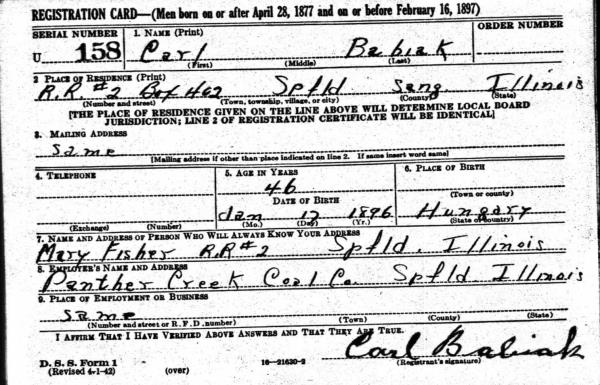 REGISTRATION CARD—(Men born on or after April 28, 1877 and on or before February 16, 1897)
SERIAL NUMBER 1. NAME (Print) ORDER NUMBER
U 158 Carl Babiak
(First) (Middle) (Last)
2 PLACE OF RESIDENCE (Print)
R.R. #2 Box 462 Spfld Sang. Illinois
(Number and street) (Town, township, village, or city) (County) (State)
[THE PLACE OF RESIDENCE GIVEN ON THE LINE ABOVE WILL DETERMINE LOCAL BOARD
JURISDICTION; LINE 2 OF REGISTRATION CERTIFICATE WILL BE IDENTICAL]
3. MAILING ADDRESS
Same
[Mailing address if other than place indicated on line 2. If same insert word same]
4. TELEPHONE 5. AGE IN YEARS 6. PLACE OF BIRTH
46
(Town or county)
DATE OF BIRTH
Jan 17 1896 Hungary
(Exchange) (Number) (Mo.) (Day) (Yr.) (State or country)
7. NAME AND ADDRESS OF PERSON WHO WILL ALWAYS KNOW YOUR ADDRESS
Mary Fisher R.R #2 Spfld, Illinois
8. EMPLOYER'S NAME AND ADDRESS
Panther Creek Coal Co. Spfld Illinois
9. PLACE OF EMPLOYMENT OR BUSINESS
Same
(Number and street or R. F. D. number) (Town) (County) (State)
I AFFIRM THAT I HAVE VERIFIED ABOVE ANSWERS AND THAT THEY ARE TRUE.
Carl Babiak
D. S. S. Form 1
(Revised 4-1-42) (over) 16—21630-2 (Registrant's signature)